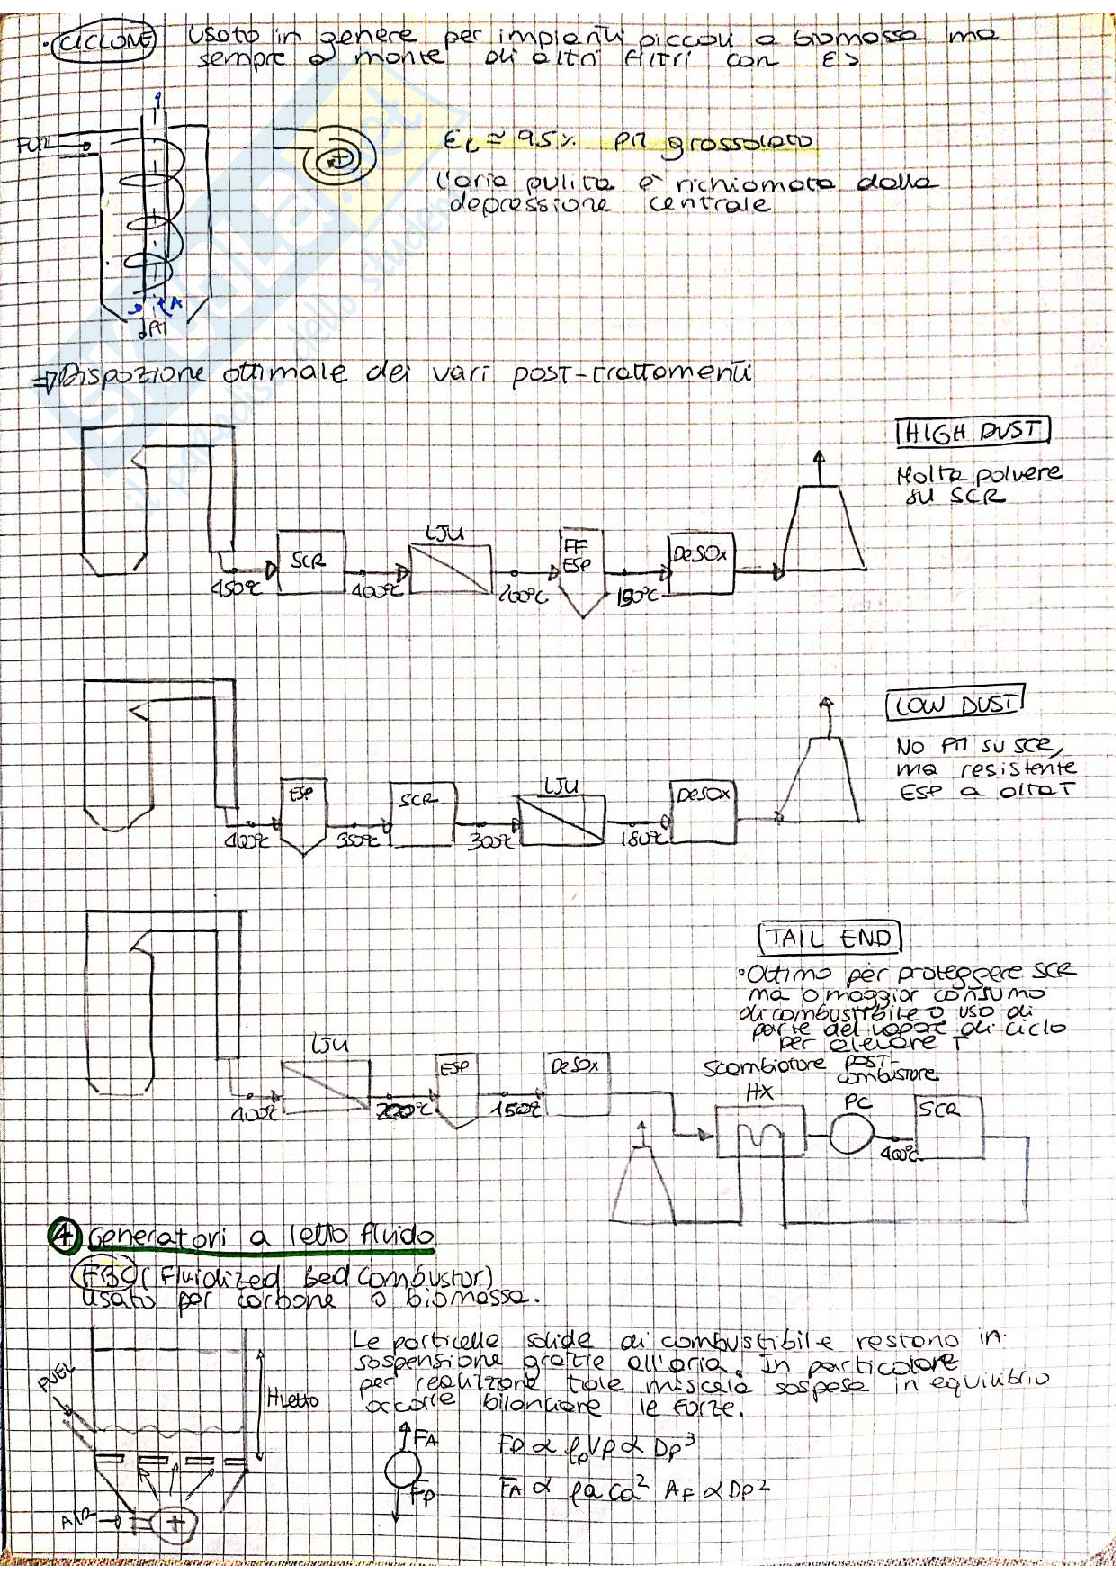 • CICLONE Usato in genere per impianti piccoli a biomassa ma
sempre a monte di altri filtri con ε>
εc ≈ 95% PM grossolano
FUMI
L'aria pulita è richiamata dalla
depressione centrale
A
dPM
⇒ Disposizione ottimale dei vari post-trattamenti
HIGH DUST
Molta polvere
su SCR
LJU
SCR
FF
ESP
DeSOx
450°C
400°C
200°C
150°C
LOW DUST
No PM su SCR,
ma resistente
ESP a alta T
ESP
SCR
LJU
DeSOx
400°C
350°C
300°C
180°C
TAIL END
• Ottimo per proteggere SCR
ma o maggior consumo
di combustibile o uso di
parte del vapore di ciclo
per elevare T
LJU
ESP
DeSOx
Scambiatore
HX
POST-
combustore
PC
SCR
400°C
220°C
150°C
400°C
4 Generatori a letto fluido
FBC (Fluidized Bed Combustor)
usato per carbone o biomassa.
Le particelle solide di combustibile restano in
sospensione grazie all'aria. In particolare
per realizzare tale miscela sospesa in equilibrio
occorre bilanciare le forze.
FUEL
Hletto
ARIA
FA
FP
FP ∝ ρp Vp ∝ Dp³
FA ∝ ρa ca² AF ∝ Dp²